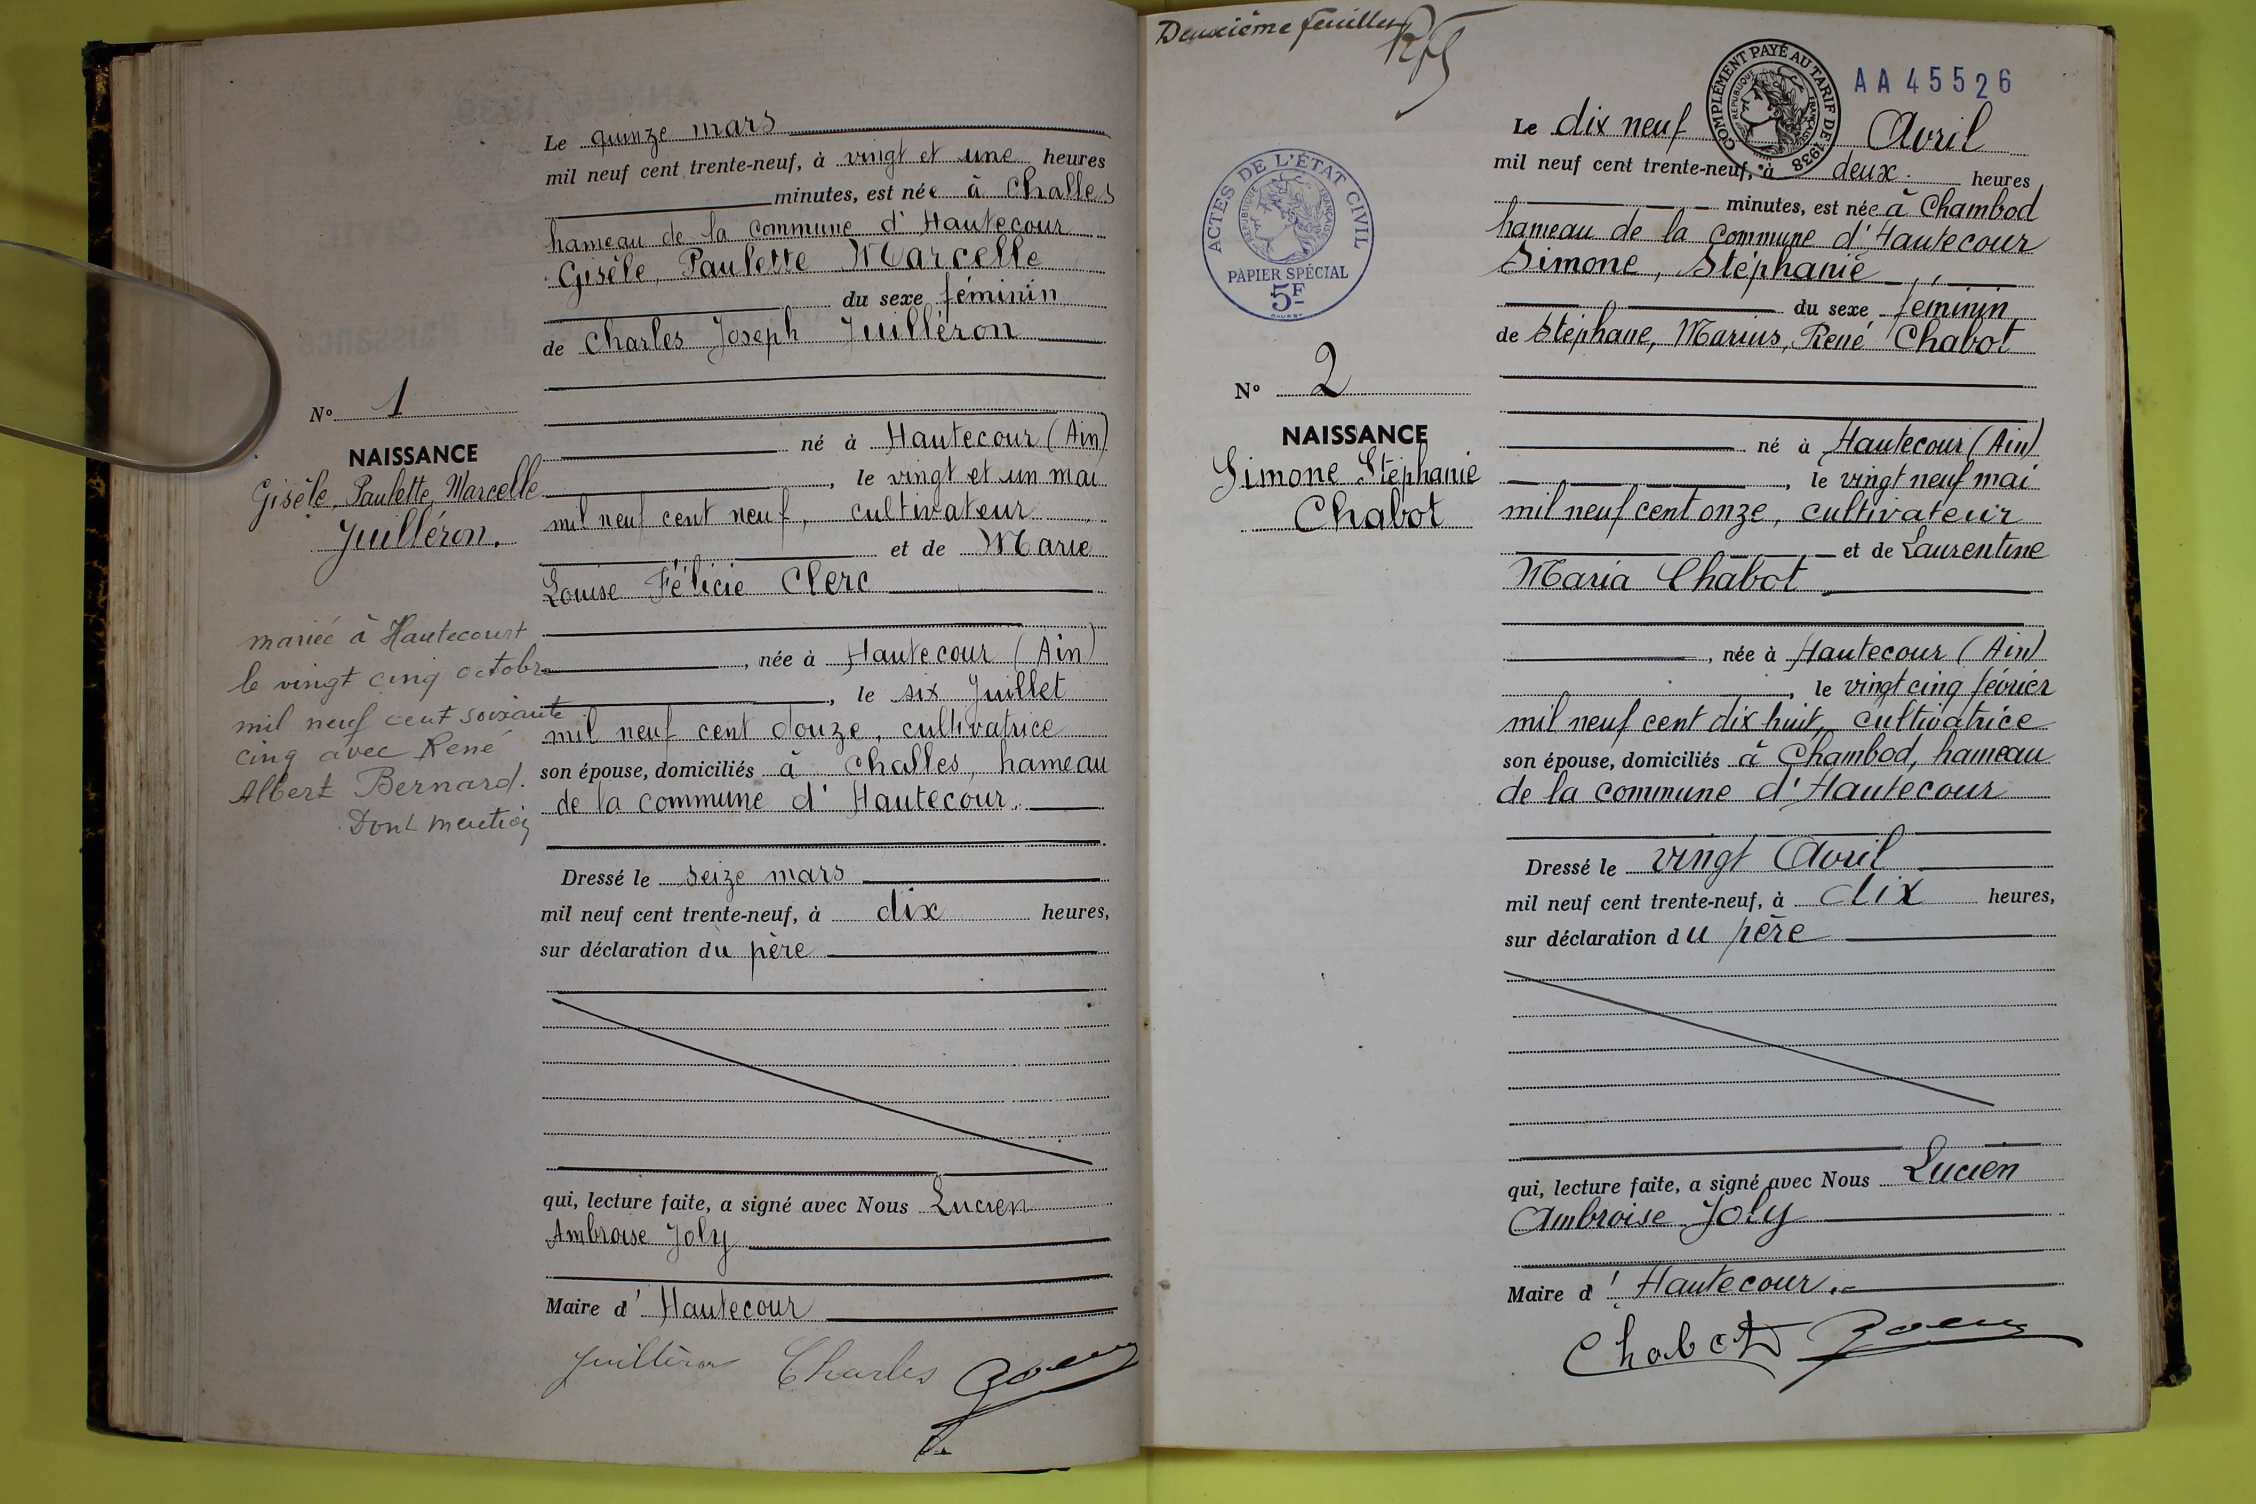 Le quinze mars
mil neuf cent trente-neuf, à vingt et une heures
minutes, est née à Challes
hameau de la commune d'Hautecour
Gisèle, Paulette Marcelle
du sexe féminin
de Charles Joseph Juilléron
N° 1
NAISSANCE
Gisèle, Paulette, Marcelle
Juilléron.
né à Hautecour (Ain)
, le vingt et un mai
mil neuf cent neuf, cultivateur
et de Marie
Louise Félicie Clerc
mariée à Hautecourt
le vingt cinq octobre
mil neuf cent soixante
cinq avec René
Albert Bernard.
Dont mention
, née à Hautecour (Ain)
, le six Juillet
mil neuf cent douze, cultivatrice
son épouse, domiciliés à Challes, hameau
de la commune d'Hautecour.
Dressé le seize mars
mil neuf cent trente-neuf, à dix heures,
sur déclaration du père
qui, lecture faite, a signé avec Nous Lucien
Ambroise Joly
Maire d'Hautecour
Juilléron Charles
Deuxième feuillet
COMPLÉMENT PAYÉ AU TARIF DE 1938
RÉPUBLIQUE FRANÇAISE
AA45526
ACTES DE L'ÉTAT CIVIL
RÉPUBLIQUE FRANÇAISE
PAPIER SPÉCIAL
5F
Le dix neuf Avril
mil neuf cent trente-neuf, à deux heures
minutes, est née à Chambod
hameau de la commune d'Hautecour
Simone, Stéphanie
du sexe féminin
de Stéphane, Marius, René Chabot
N° 2
NAISSANCE
Simone Stéphanie
Chabot
né à Hautecour (Ain)
, le vingt neuf mai
mil neuf cent onze, cultivateur
et de Laurentine
Maria Chabot
, née à Hautecour (Ain)
, le vingt cinq février
mil neuf cent dix huit, cultivatrice
son épouse, domiciliés à Chambod, hameau
de la commune d'Hautecour
Dressé le vingt Avril
mil neuf cent trente-neuf, à dix heures,
sur déclaration du père
qui, lecture faite, a signé avec Nous Lucien
Ambroise Joly
Maire d'Hautecour.
Chabot